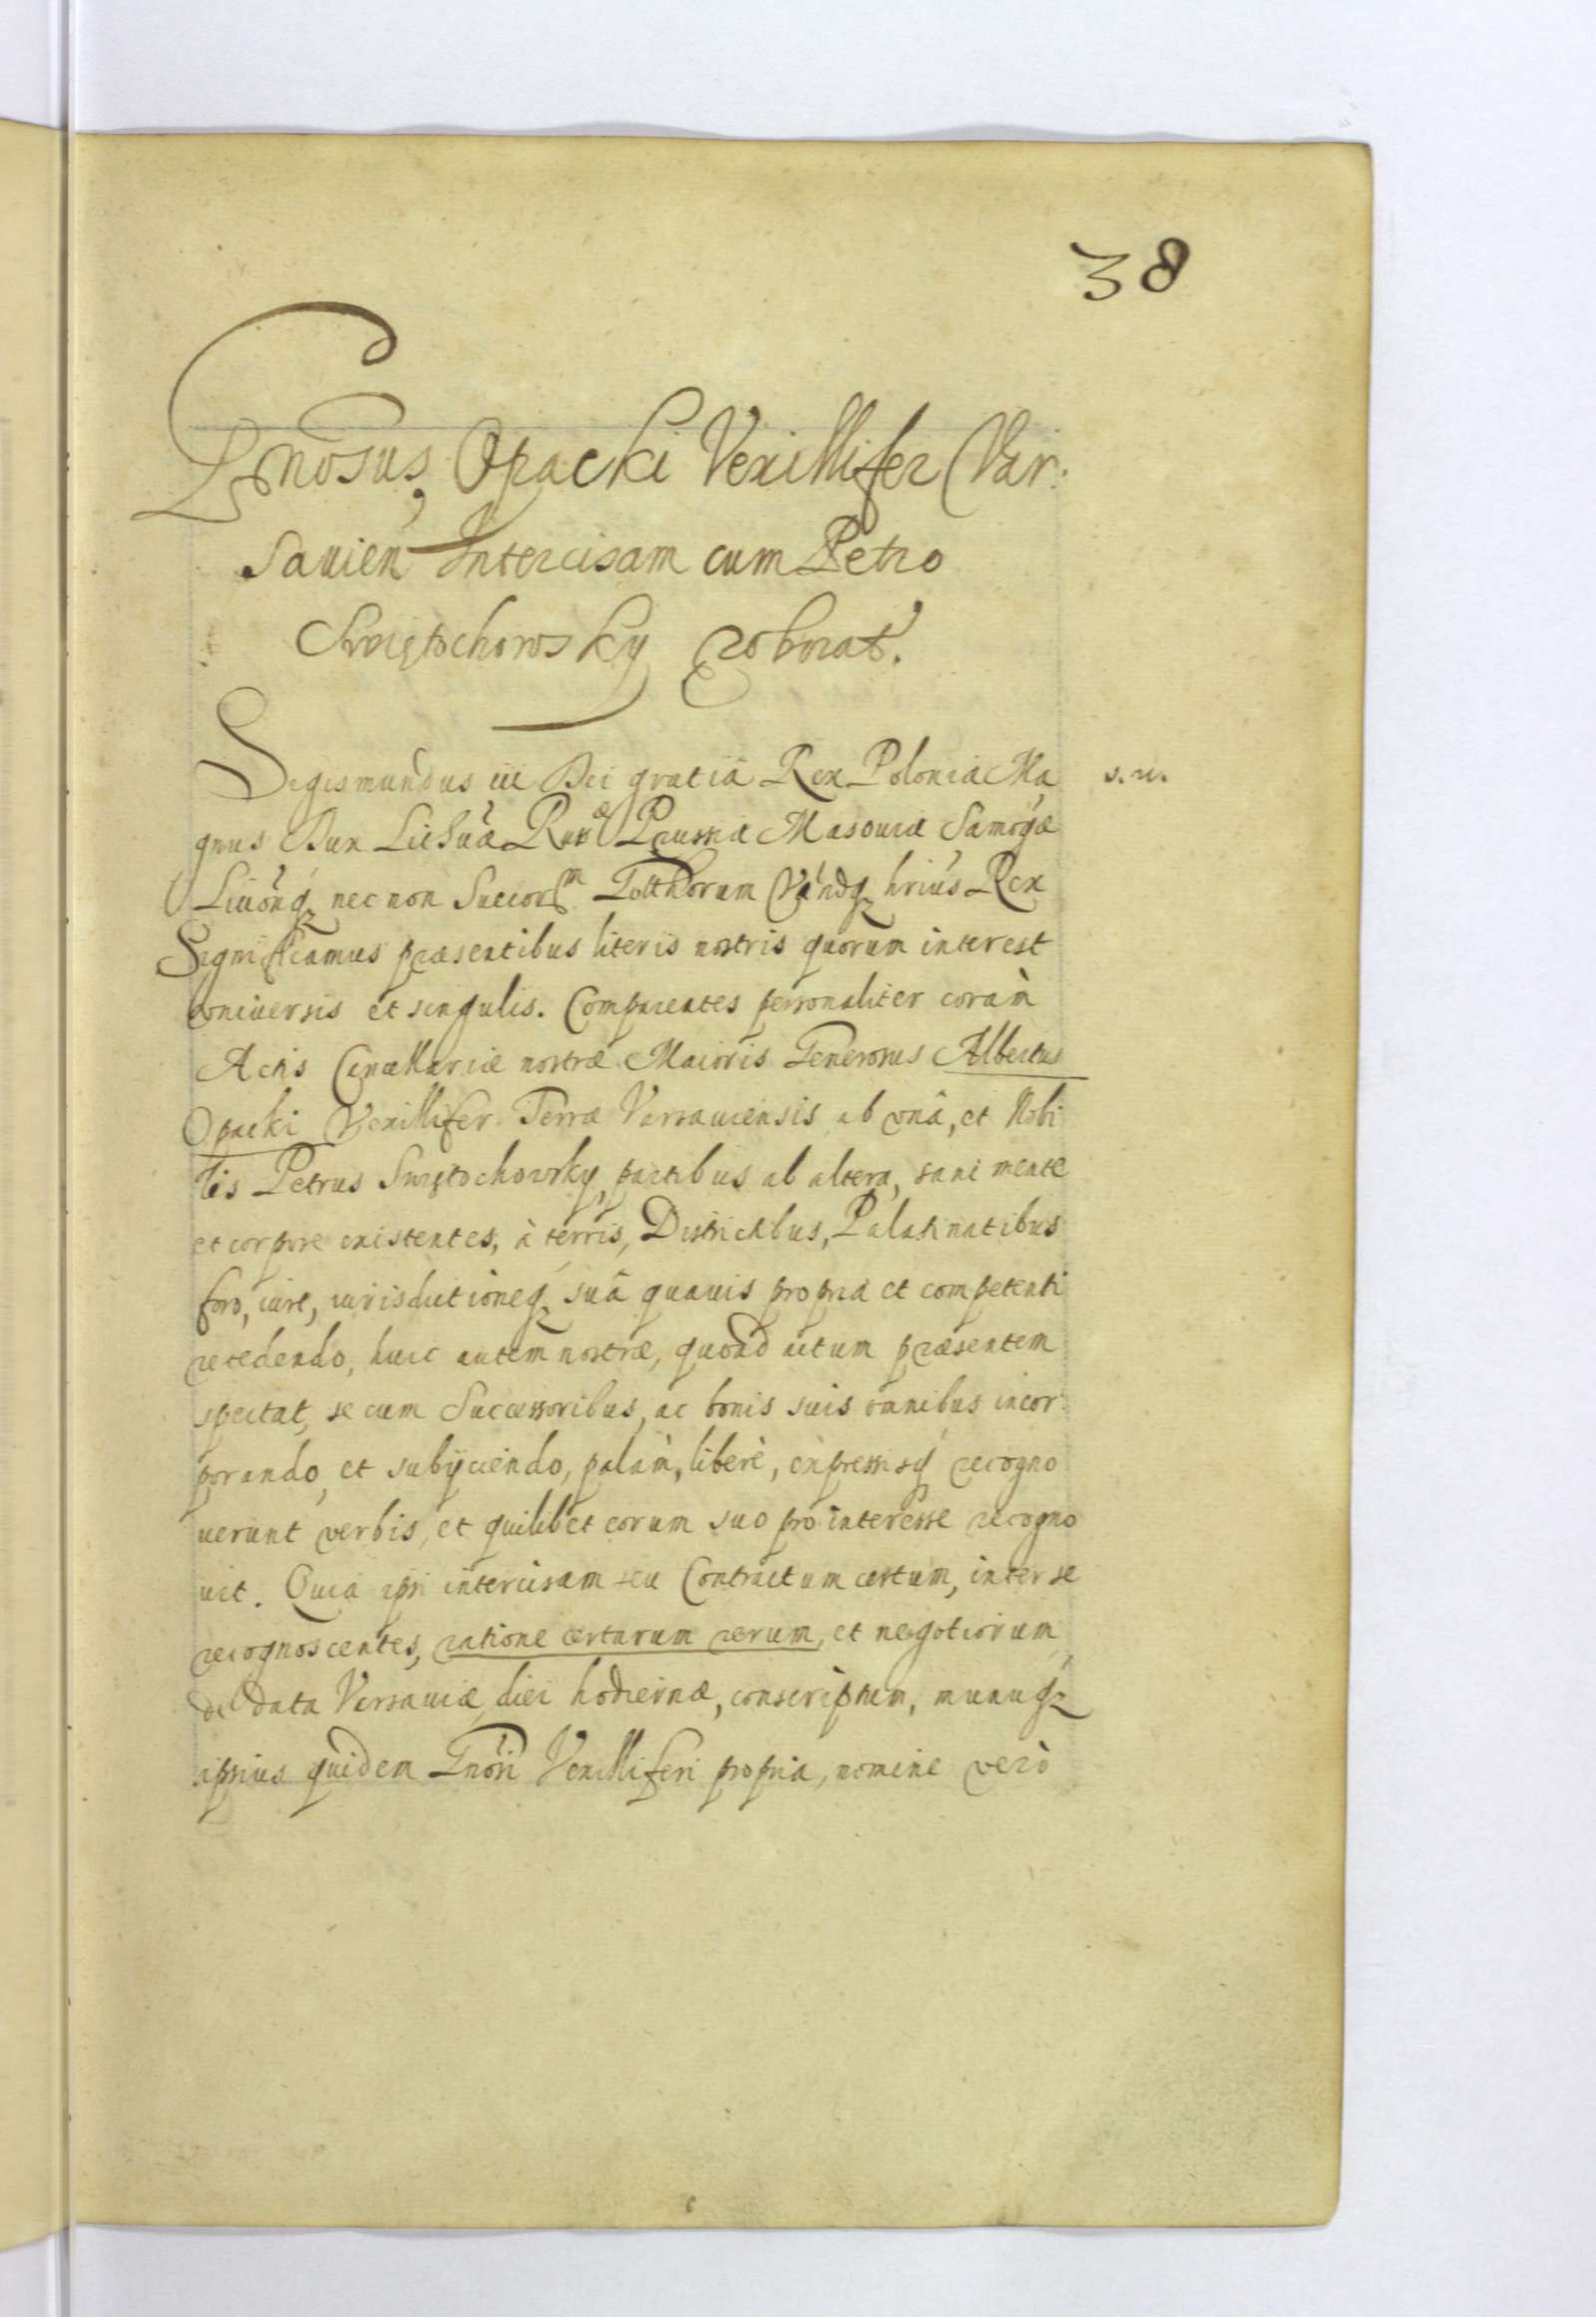 38
Gnosus Opacki Vexillifer Var
sauien Intercisam cum Petro
Swiętochowsky roborat.
Sigismundus iii Dei gratiâ Rex Poloniæ Ma s. n.
gnus Dux Lithuæ Russæ Prussiæ Masouiæ Samogæ
Liuonq nec non Suecorm Gotthorum Vandq hrius Rex
Significamus præsentibus literis nostris quorum interest
vniuersis et singulis. Comparentes personaliter coràm
Actis Cancellariæ nostræ Maioris Generosus Albertus
Opacki Vexillifer Terræ Varsauiensis ab vnâ, et Nobi
lis Petrus Swiętochowsky, partibus ab altera, sani mente
et corpore existentes, à terris, Districtibus, Palatinatibus
foro, iure, iurisdictioneq suâ quauis propria et competenti
recedendo, huic autem nostræ, quoad actum præsentem
spectat, se cum Successoribus, ac bonis suis omnibus incor
porando, et subÿciendo, palàm, liberè, expressisq recogno
uerunt verbis, et quilibet eorum suo pro interesse recogno
uit. Quia ipsi intercisam seu Contractum certum, inter se
recognoscentes, ratione certarum rerum, et negotiorum
de data Varsauiæ, diei hodiernæ, conscriptum, manuq
ipsius quidem Gnosi Vexilliferi propria, nomine verò